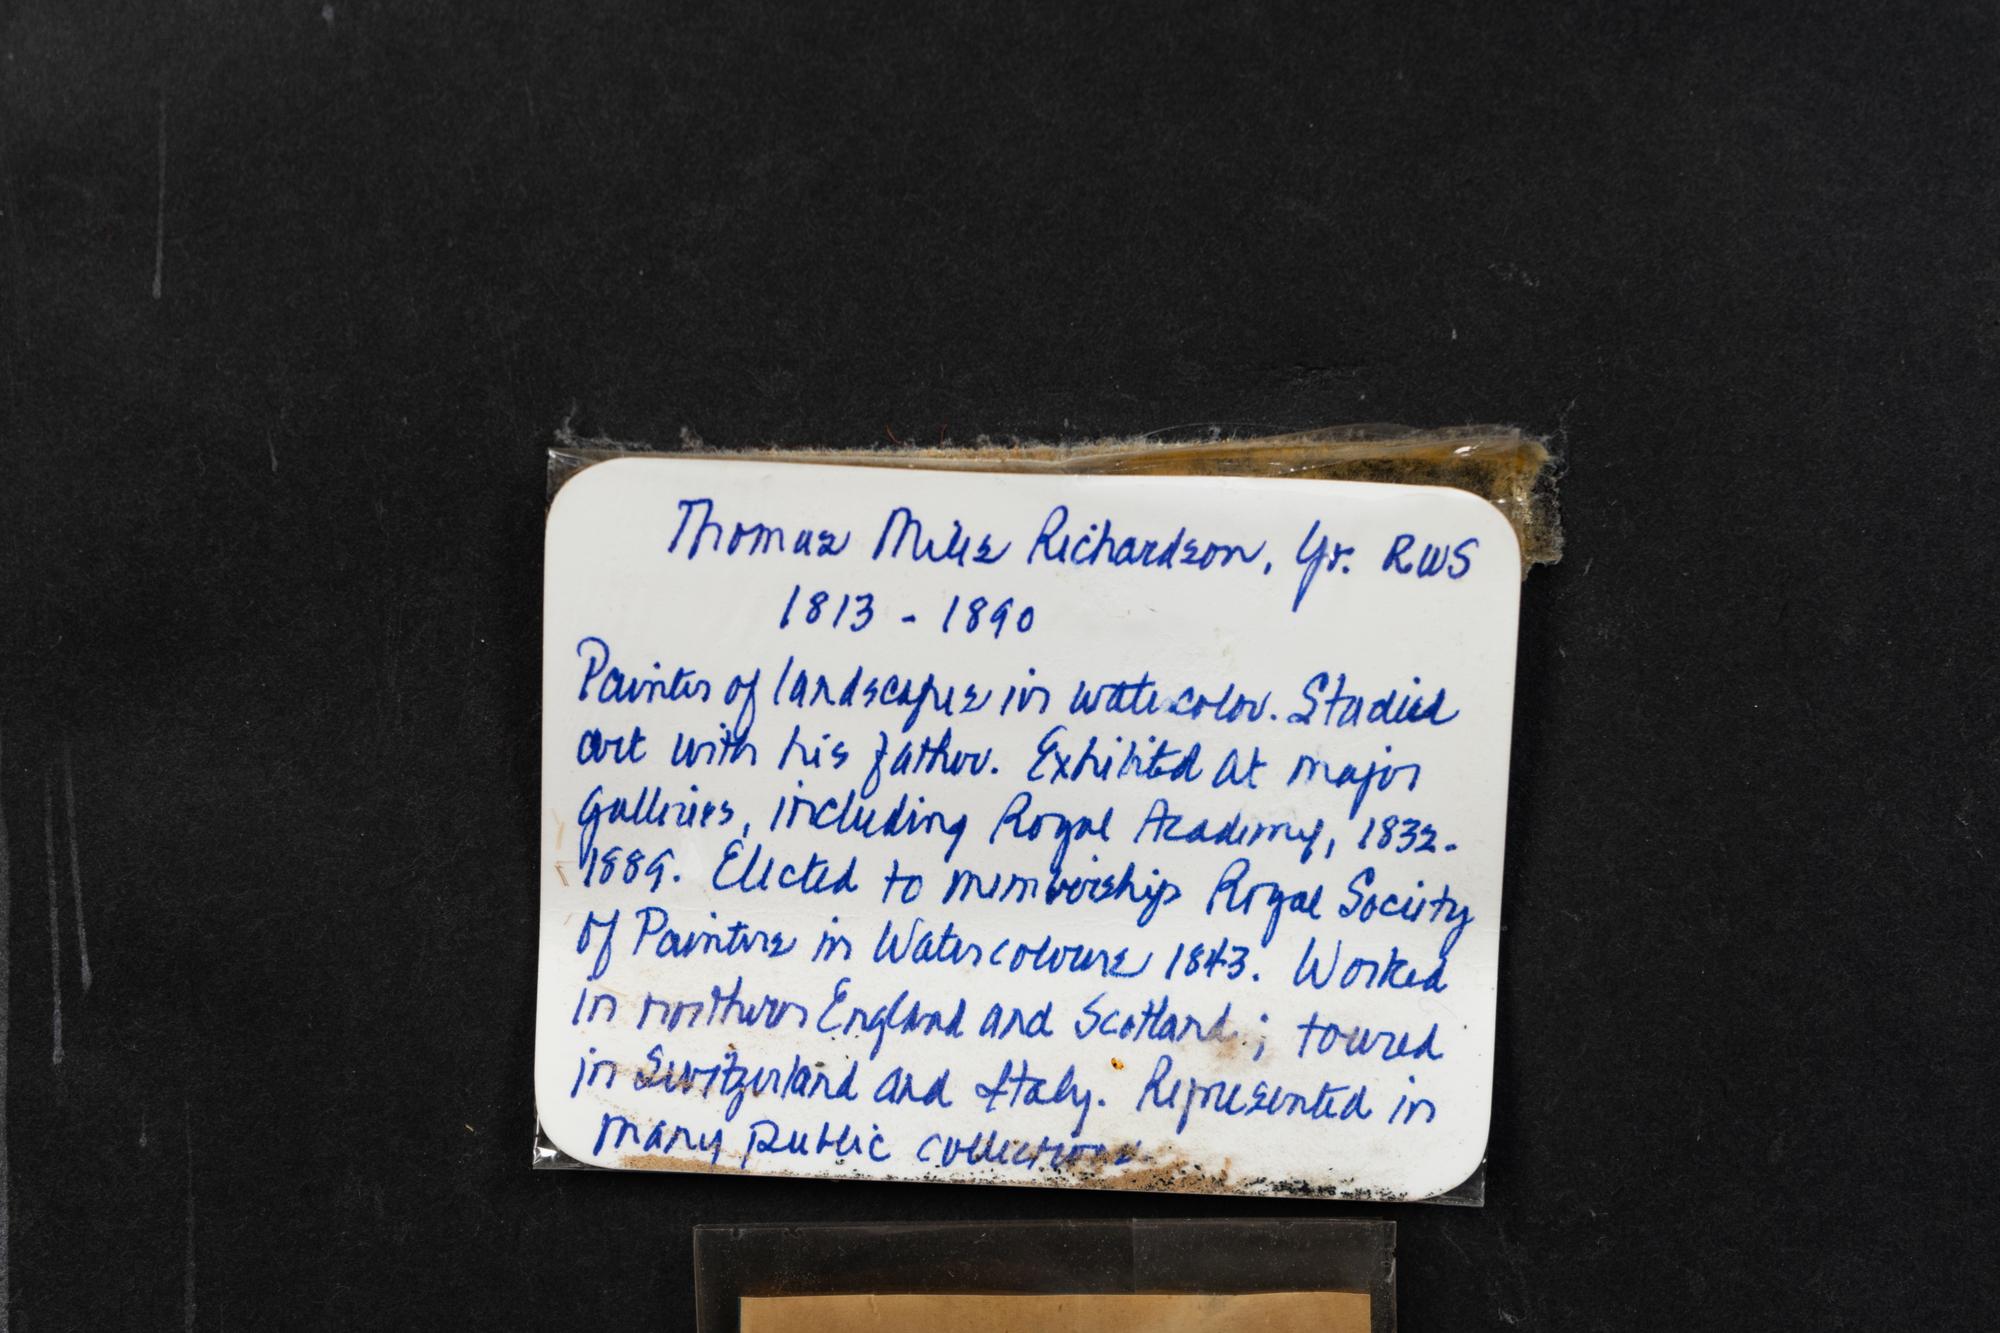 Thomas Miles Richardson, Yr. RWS
1813 - 1890
Painter of landscapes in watercolor. Studied
art with his father. Exhibited at major
galleries, including Royal Academy, 1832-
1889. Elected to membership Royal Society
of Painters in Watercolours 1843. Worked
in northern England and Scotland; toured
in Switzerland and Italy. Represented in
many public collections.